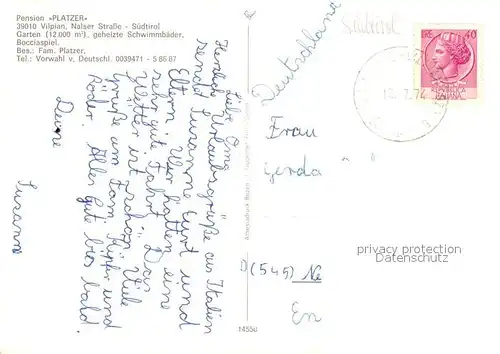 Pension »PLATZER«
39010 Vilpian, Nalser Straße - Südtirol
Garten (12.000 m²), geheizte Schwimmbäder,
Bocciaspiel.
Bes.: Fam. Platzer,
Tel.: Vorwahl v. Deutschl. 0039471 - 5 86 87
Liebe Oma
Herzliche Urlaubsgrüße aus Italien
sendet Susanne Kurt und
Eltern. Wir hatten eine
sehr gute Fahrt. Das
Wetter ist schön. Viele
Grüße an Fam. und
Röder. Alles gute bis bald.
Deine
Susanne
14550
Südtirol
Deutschland
LIRE 40
Frau
Gerda
privacy protection
Datenschutz
D (545) Ne
En